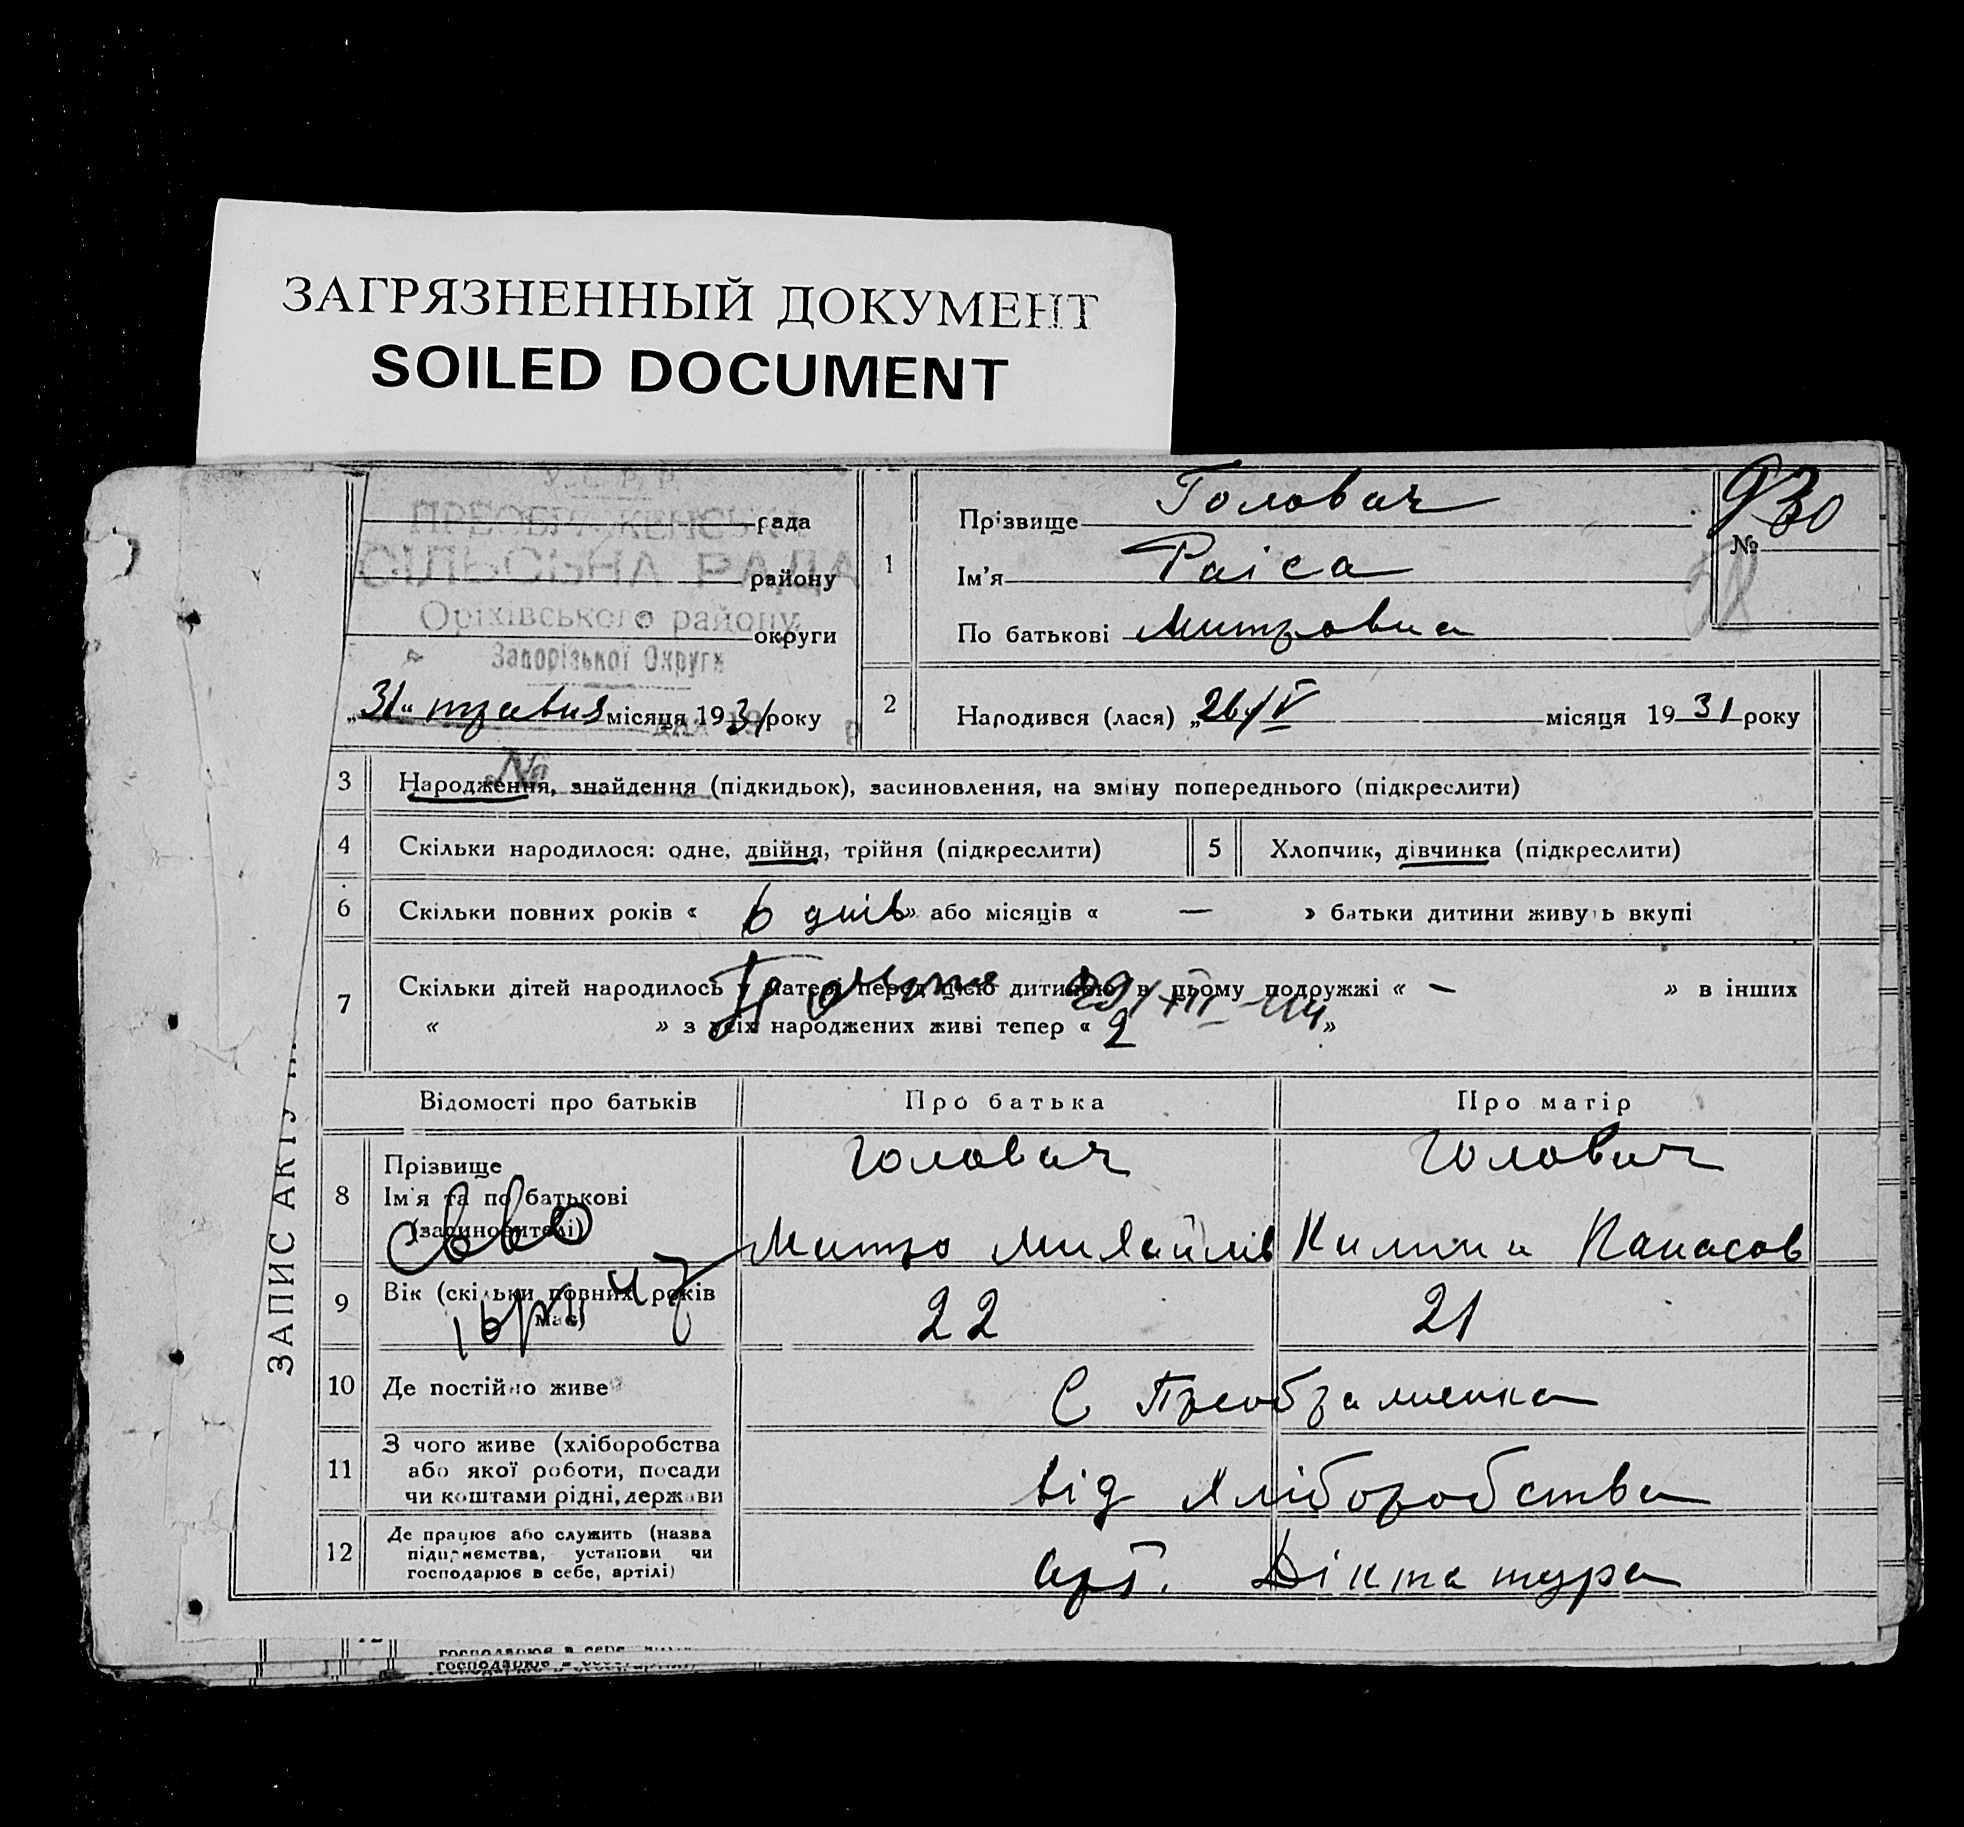 ЗАГРЯЗНЕННЫЙ ДОКУМЕНТ
SOILED DOCUMENT
У.С.Р.Р.
ПРЕОБРАЖЕНСЬКА
СІЛЬСЬНА РАДА
Оріхівського району
Запорізької Округи
рада
району
округи
„31“ травня місяця 1931 року
№
1
Прізвище Головач
Ім'я Раїса
По батькові Митровна
№ 930
2
Народився (лася) „26/V місяця 1931 року
3 Народження, знайдення (підкидьок), засиновлення, на зміну попереднього (підкреслити)
4 Скільки народилося: одне, двійня, трійня (підкреслити)
5 Хлопчик, дівчинка (підкреслити)
6 Скільки повних років « 6 днів » або місяців « — » батьки дитини живуть вкупі
7 Скільки дітей народилось у матері перед цією дитиною в цьому подружжі « — » в інших
« » з усіх народжених живі тепер « 2 »
Відомості про батьків Про батька Про матір
8 Прізвище Головач Головач
Ім'я та по батькові
(засиновителі) Митро Михайлів Килина Панасов
9 Вік (скільки повних років має) 22 21
10 Де постійно живе С Преображенка
11 З чого живе (хліборобства
або якої роботи, посади
чи коштами рідні, держави від хліборобства
12 Де працює або служить (назва
підприємства, установи чи
господарює в себе, артілі) арт. Діктатура
ЗАПИС АКТУ